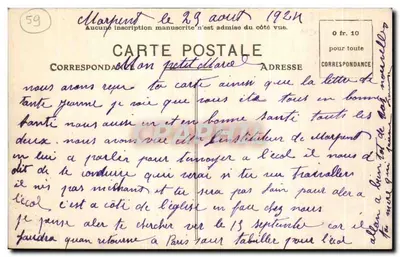 59
Marpent le 29 aout 1924
Aucune inscription manuscrite n'est admise du côté vue.
CARTE POSTALE
CORRESPONDANCE
ADRESSE
0 fr. 10
pour toute
CORRESPONDANCE
Mon petit Marcel
nous avons reçu ta carte ainsi que la lettre de
tante Jeanne je voie que vous ete tous en bonne
santé nous aussi on et en bonne santé tout les
deux. nous avons vue l'instituteur de Marpent
on lui a parler pour t'envoyer a l'écol il nous a
dit de te conduire qui verai si tu sai travailler
il n'es pas mechant et tu sera pas loin pour aler a
l'écol c'est a coté de l'église en face chez nous
je pense aler te chercher ver le 15 septembre car il
faudra quon retourne a Paris sans tabiller pour l'écol